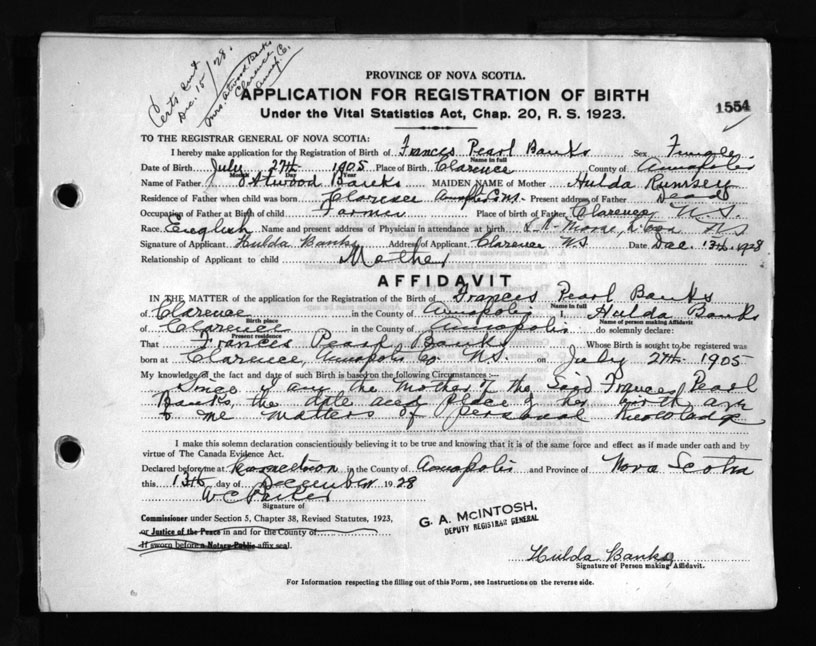 Certs. sent
Dec. 15/28.
Mrs Atwood Banks
Clarence
Annap. Co.
PROVINCE OF NOVA SCOTIA.
APPLICATION FOR REGISTRATION OF BIRTH
1554
Under the Vital Statistics Act, Chap. 20, R. S. 1923.
TO THE REGISTRAR GENERAL OF NOVA SCOTIA:
I hereby make application for the Registration of Birth of Frances Pearl Banks Sex Female
Name in full
Date of Birth July 27th 1905 Place of Birth Clarence County of Annapolis
Month Day Year
Name of Father Atwood Banks MAIDEN NAME of Mother Hulda Rumsey
Residence of Father when child was born Clarence Annapolis Co NS. Present address of Father Dead
Occupation of Father at Birth of child Farmer Place of birth of Father Clarence, N.S.
Race, English Name and present address of Physician in attendance at birth NS
Signature of Applicant Hulda Banks Address of Applicant Clarence N.S Date Dec. 13th 1928
Relationship of Applicant to child Mother
AFFIDAVIT
IN THE MATTER of the application for the Registration of the Birth of Frances Pearl Banks
Name in full
of Clarence in the County of Annapolis I, Hulda Banks
Birth place Name of person making Affidavit
of Clarence in the County of Annapolis do solemnly declare:
Present residence
That Frances Pearl Banks Whose Birth is sought to be registered was
born at Clarence, Annapolis Co N.S. on July 27th 1905
My knowledge of the fact and date of such Birth is based on the following Circumstances:—
Since I am the mother of the said Frances Pearl
Banks, the date and place of her birth are
to me matters of personal knowladge
I make this solemn declaration conscientiously believing it to be true and knowing that it is of the same force and effect as if made under oath and by
virtue of The Canada Evidence Act.
Declared before me at in the County of Annapolis and Province of Nova Scotia
this 13th day of December 1928
W C Parker
Signature of
Commissioner under Section 5, Chapter 38, Revised Statutes, 1923,
or Justice of the Peace in and for the County of
If sworn before a Notary Public affix seal.
G. A. McINTOSH,
DEPUTY REGISTRAR GENERAL
Hulda Banks
Signature of Person making Affidavit.
For Information respecting the filling out of this Form, see Instructions on the reverse side.